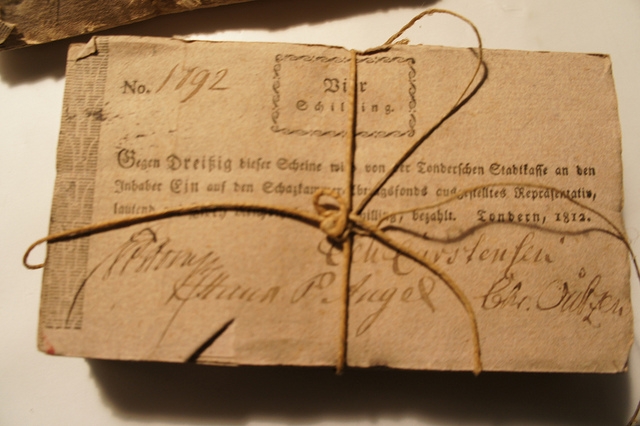 No. 1792
Vier
Schilling.
Gegen Dreißig dieser Scheine wird von der Tonderschen Stadtkasse an den
Inhaber Ein auf den Schazkammer ausgestelltes Repräsentativ,
lautend bezahlt. Tondern, 1812.
Carstensen
P. Angel Chr.